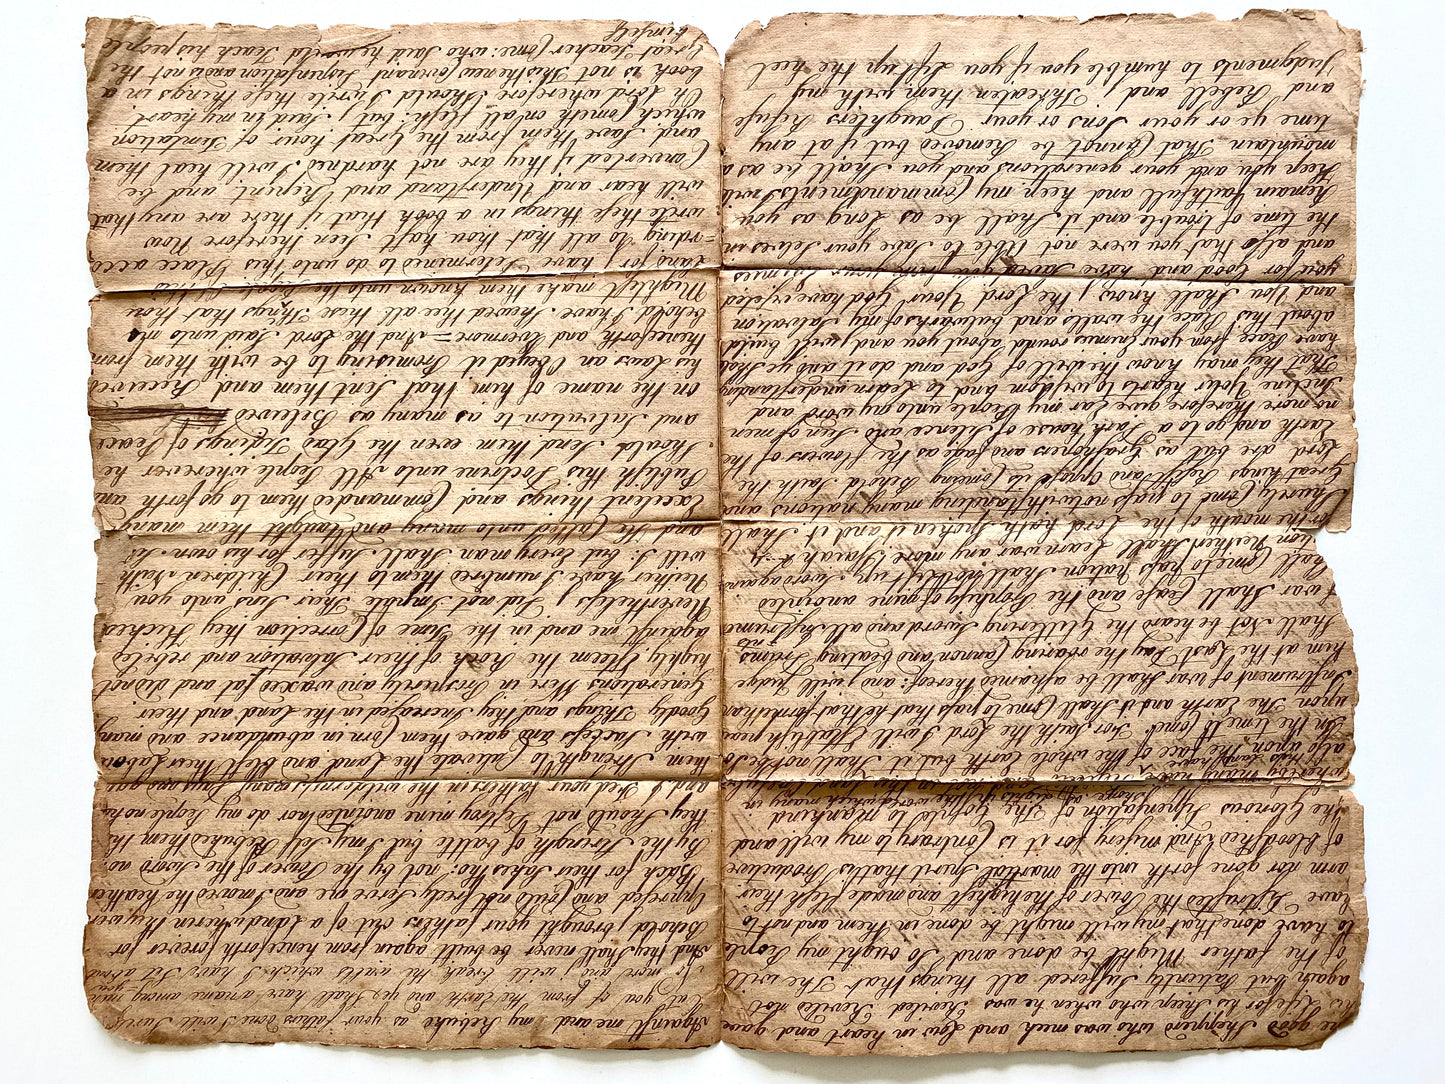 good Shepperd who was meek and Low in heart and gave
his Life for his Sheep who when he was Reviled Reviled not
again but Patiently Suffered all things that The will
of the father Might be done and So ought my People
to have done that my will might be done in them and not to
have the Power of the highest and made flesh their
arm nor gone forth into the martial Spirit that is Productive
of bloodshed And misery for it is Contrary to my will and
the Glorious Dispensation of The Gospel to mankind
also upon the face of the whole Earth but it Shall not be So
In the time to Come: For Saith the Lord I will Establish peace
upon The Earth and it Shall Come to pass that he that
Instrument of war Shall be ashamed thereof: and will Judge
him at the Last Day the roaring Cannon and beating Drums
Shall Not be heard the Glittering Sword and all Instruments
of war Shall Cease and the Prophesy of mine anointed
Shall Come to pass nation Shall Not lift up Sword against
Nation Neither Shall Learn war any more: Isaiah 2-4
for the mouth of the Lord hath Spoken it and it Shall
Shurely Come to pass notwithstanding many nations and
Great kings Resist and Oppose its Comeing Behold Saith the
Lord are but as Grasshoppers and fade as the flowers of the
Earth and go to a Dark house of Silence and Seen of men
no more Therefore give Ear my People unto my word and
Incline Your hearts to wisdom and to Learn understanding
That they may know the will of God and do it and ye Shall
have Peace from your Enimies round about you and I will build
about this Place the walls and bulwarks of my Salvation
and You Shall know I the Lord Your God have visited
you for Good and have Saved you from your Enimies
and also that you were not Able to Save your Selves in
the time of trouble and it Shall be as Long as you
Remain faithfull and keep my Commandments I will
Keep you and your generations and you Shall be as a
mountain That Cannot be Removed but if at any
time ye or your Sons or your Daughters Refuse
and Rebell and I Threaten them with my
Judgments to humble you if you Lift up the heel
Against me and my Rebuke as your fathers done I will Surely
Lay you of from the Earth and ye Shall have a name among men
no more and I will break the walls which I have Set about you
And they Shall never be built again from henceforth forever for
Behold I brought your fathers out of a Land wherein they were
Opressed and Could not freely Serve me and I moved the heathen
Back for their Sakes tho: not by the Power of the Sword no:
By the Strength of battle but I my Self Rebuked them that
they Should not Destroy mine anointed nor do my People no harm
And I Fed your fathers in the wilderness many Days and gave
them Strength to Cultivate the Land and blest their Labour
with Success and gave them Corn in abundance and many
Goodly Things and they Increased in the Land: and their
Generations Were in Prosperity and waxed fat and did not
highly Esteem the Rock of their Salvation and rebelled
against me and in the Time of Correction they Kicked
Nevertheless I Did not Impute Their Sins unto you
Neither have I numbred them to their Children Saith
will I: but Every man Shall Suffer for his own Sin
and He Called unto many and taught them many
Excelent things and Commanded them to go forth and
Publish this Doctrine unto All People wherever he
Should Send them even the Glad Tidings of Peace
and Salvation to as many as Believed
on the name of him that Sent them and Received
his Laws an Obeyed it Promising to be with them from
thenceforth and Evermore = And the Lord Said unto me
behold I have Shewed thee all these Things that thou
Mightest make them known unto the People of this
Land for I have Determined to do unto this Place acco
=rding to all that thou hast Seen Therefore Now
write these things in a book that if there are any that
will hear and Understand and Repent and be
Converted if they are not hardned I will heal them
and Save them from the Great hour of Temtation
which Cometh on all flesh: but I Said in my heart
Oh Lord wherefore Should I write these things in a
book is not This the new Covenant Dispensation and is not the
Great Teacher Come: who Said he would Teach his people
himself